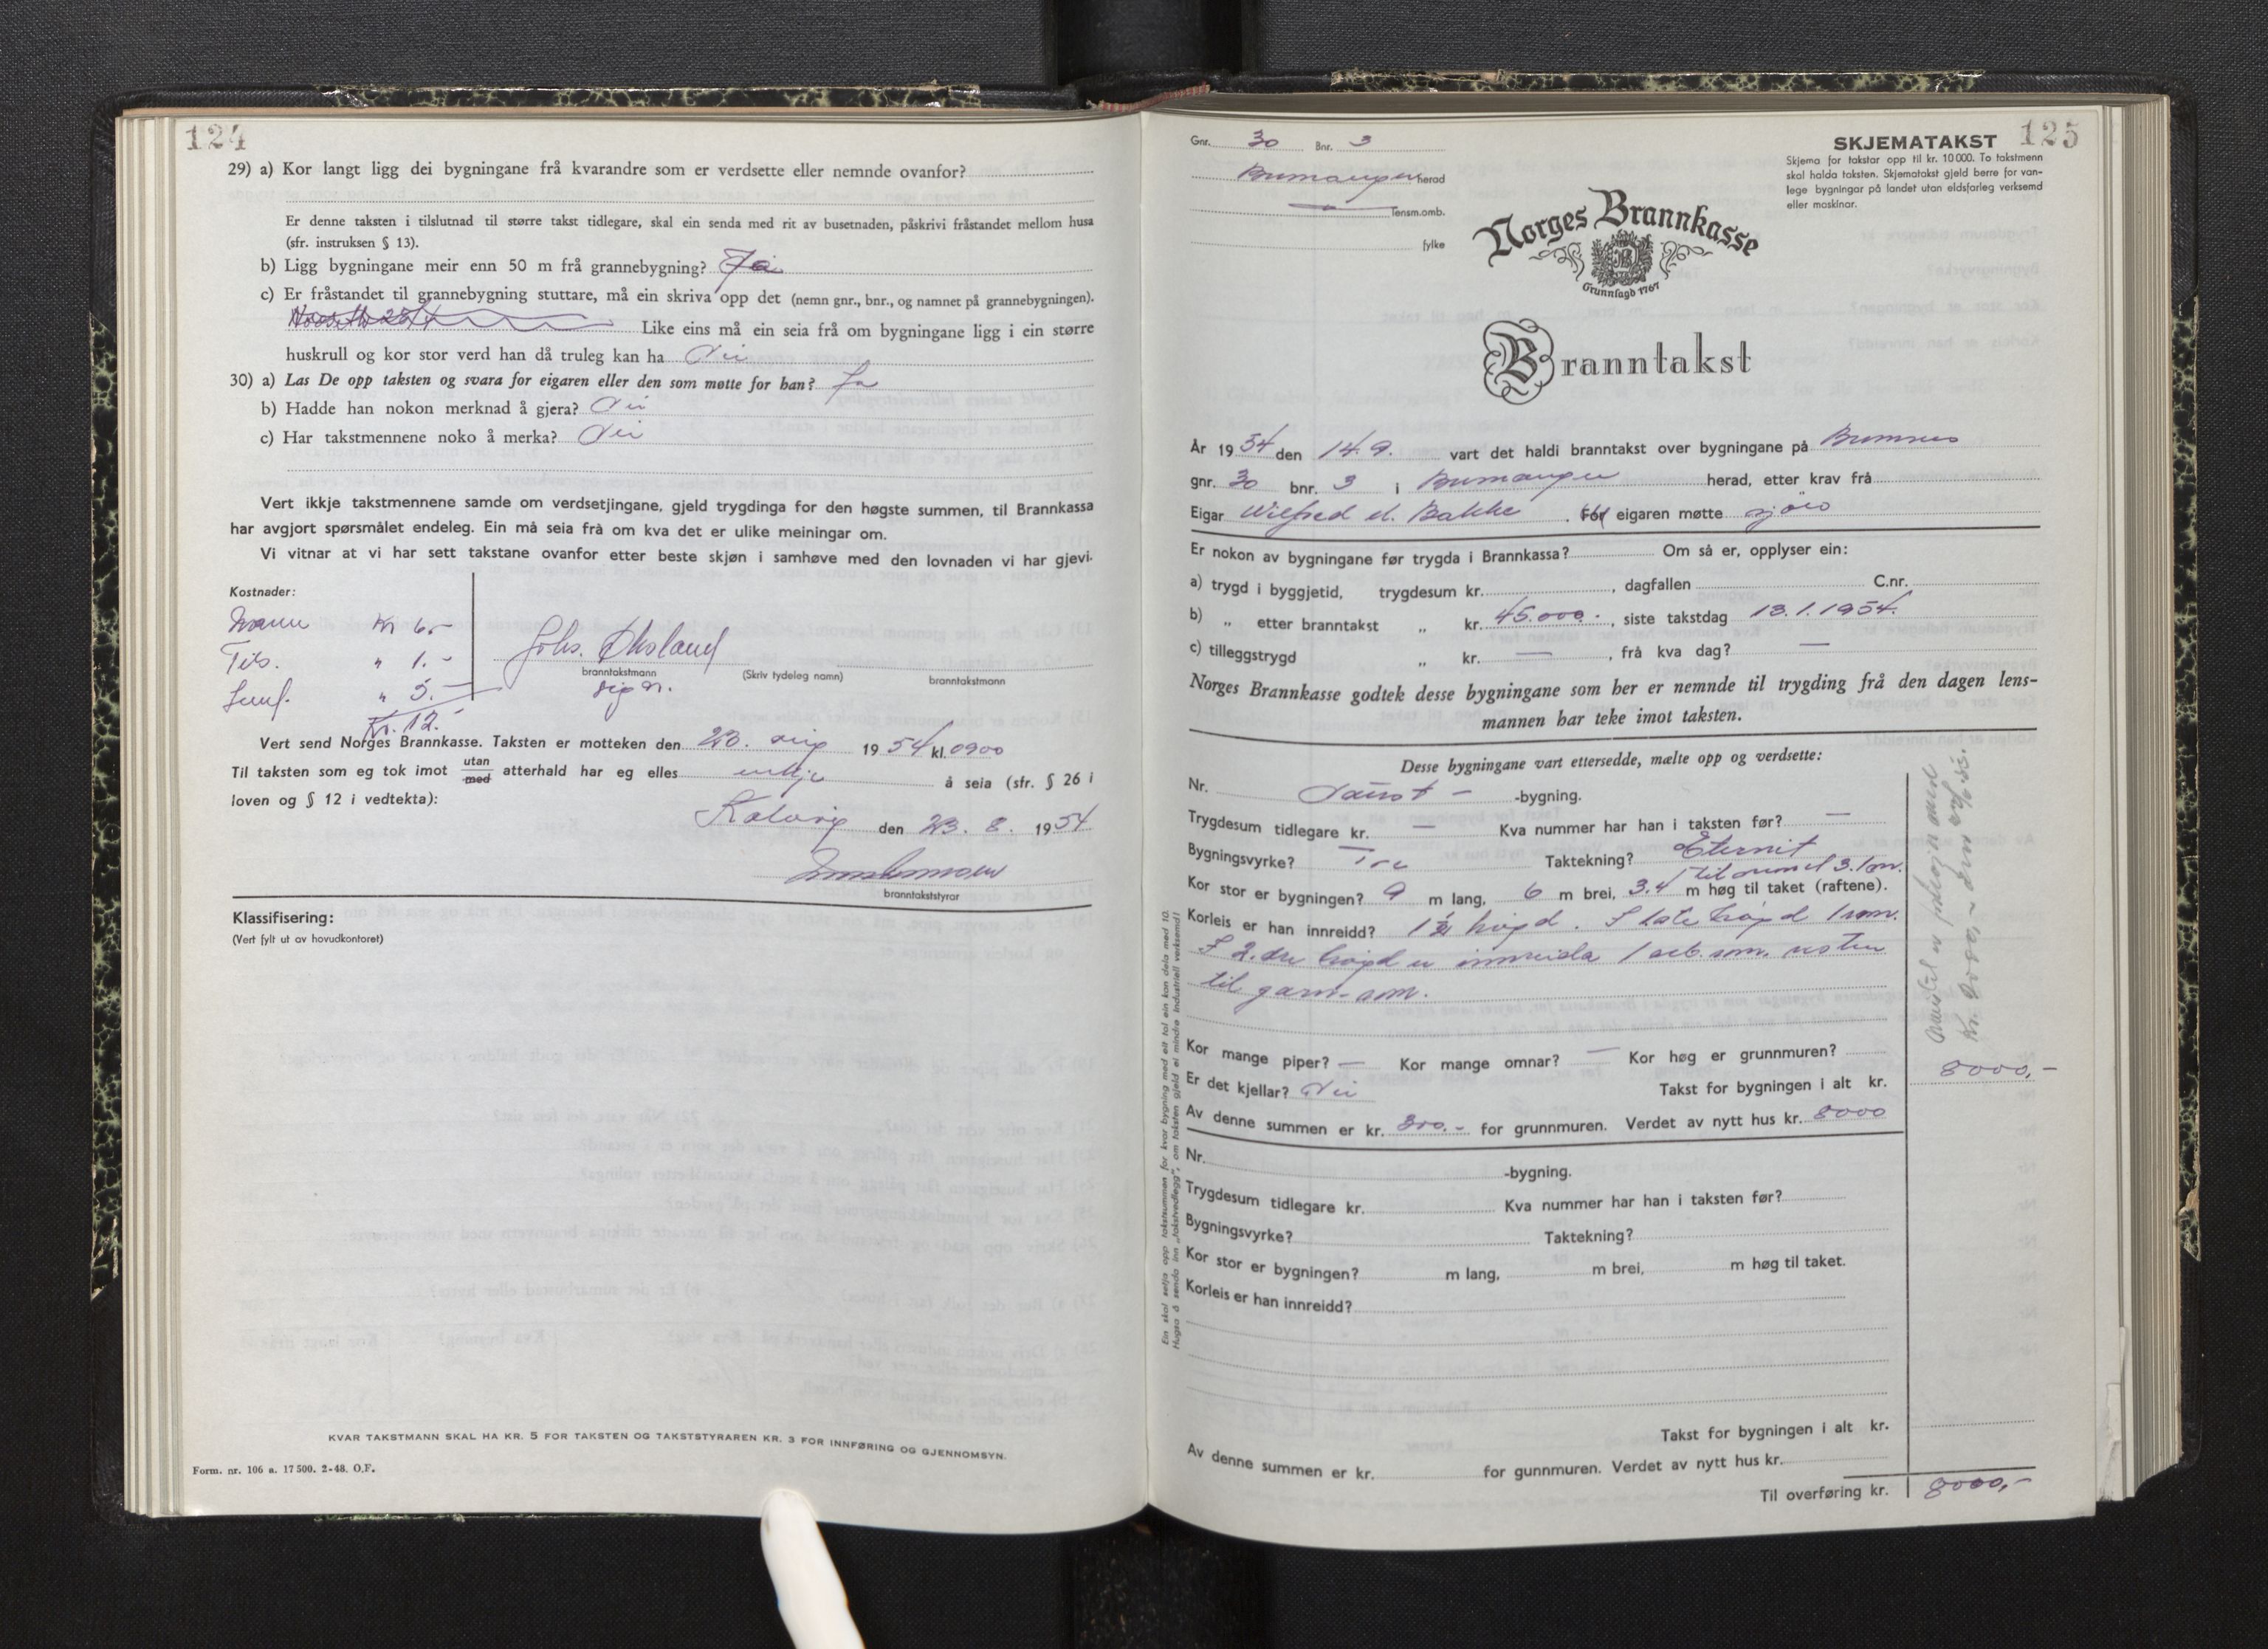 124
29) a) Kor langt ligg dei bygningane frå kvarandre som er verdsette eller nemnde ovanfor?
Er denne taksten i tilslutnad til større takst tidlegare, skal ein senda med rit av busetnaden, påskrivi fråstandet mellom husa
(sfr. instruksen § 13).
b) Ligg bygningane meir enn 50 m frå grannebygning? Ja
c) Er fråstandet til grannebygning stuttare, må ein skriva opp det (nemn gnr., bnr., og namnet på grannebygningen).
Like eins må ein seia frå om bygningane ligg i ein større
huskrull og kor stor verd han då truleg kan ha Nei
30) a) Las De opp taksten og svara for eigaren eller den som møtte for han? Ja
b) Hadde han nokon merknad å gjera? Nei
c) Har takstmennene noko å merka? Nei
Vert ikkje takstmennene samde om verdsetjingane, gjeld trygdinga for den høgste summen, til Brannkassa
har avgjort spørsmålet endeleg. Ein må seia frå om kva det er ulike meiningar om.
Vi vitnar at vi har sett takstane ovanfor etter beste skjøn i samhøve med den lovnaden vi har gjevi.
Kostnader:
Mann Kr 6.-
" 1.-
" 5.-
Kr. 12.-
branntakstmann
(Skriv tydeleg namn)
branntakstmann
sign.
Vert send Norges Brannkasse. Taksten er motteken den 23. aug 1954 kl. 0900
Til taksten som eg tok imot utan/med atterhald har eg elles å seia (sfr. § 26 i
loven og § 12 i vedtekta):
Kalvåg den 23. 8. 1954
branntakststyrar
Klassifisering:
(Vert fylt ut av hovudkontoret)
KVAR TAKSTMANN SKAL HA KR. 5 FOR TAKSTEN OG TAKSTSTYRAREN KR. 3 FOR INNFØRING OG GJENNOMSYN.
Form. nr. 106 a. 17 500. 2-48. O.F.
Gnr. 30 Bnr. 3
Bremanger herad
— lensm.omb.
fylke
SKJEMATAKST 125
Skjema for takstar opp til kr. 10 000. To takstmenn
skal halda taksten. Skjematakst gjeld berre for van-
lege bygningar på landet utan eldsfarleg verksemd
eller maskinar.
Norges Brannkasse
Grunnlagd 1767
Branntakst
År 1954 den 14.9. vart det haldi branntakst over bygningane på Bremnes
gnr. 30 bnr. 3 i Bremanger herad, etter krav frå
Eigar Wilfred M. Bakke. For eigaren møtte sjølv
Er nokon av bygningane før trygda i Brannkassa? Om så er, opplyser ein:
a) trygd i byggjetid, trygdesum kr. , dagfallen C.nr.
b) „ etter branntakst „ kr. 45.000.-, siste takstdag 13.1.1954.
c) tilleggstrygd „ kr. —, frå kva dag? —
Norges Brannkasse godtek desse bygningane som her er nemnde til trygding frå den dagen lens-
mannen har teke imot taksten.
Desse bygningane vart ettersedde, mælte opp og verdsette:
Nr. Naust - -bygning.
Trygdesum tidlegare kr. — Kva nummer har han i taksten før? —
Bygningsvyrke? Tre Taktekning? Eternit
til mønet 3.1m.
Kor stor er bygningen? 9 m lang, 6 m brei, 3.4 m høg til taket (raftene).
Korleis er han innreidd? 1 1/2 høgd. I 1ste høgd 1 rom.
I 2.dre høgd er innreida 1 arb.rom. resten
til garn-rom.
Kor mange piper? — Kor mange omnar? — Kor høg er grunnmuren?
Er det kjellar? Nei Takst for bygningen i alt kr. 8000,-
Av denne summen er kr. 800.- for grunnmuren. Verdet av nytt hus kr. 8000
Nr. -bygning.
Trygdesum tidlegare kr. Kva nummer har han i taksten før?
Bygningsvyrke? Taktekning?
Kor stor er bygningen? m lang, m brei, m høg til taket.
Korleis er han innreidd?
Takst for bygningen i alt kr.
Av denne summen er kr. for gunnmuren. Verdet av nytt hus kr.
Til overføring kr. 8000,-
Ein skal setja opp takstsummen for kvar bygning med eit tal ein kan dela med 10.